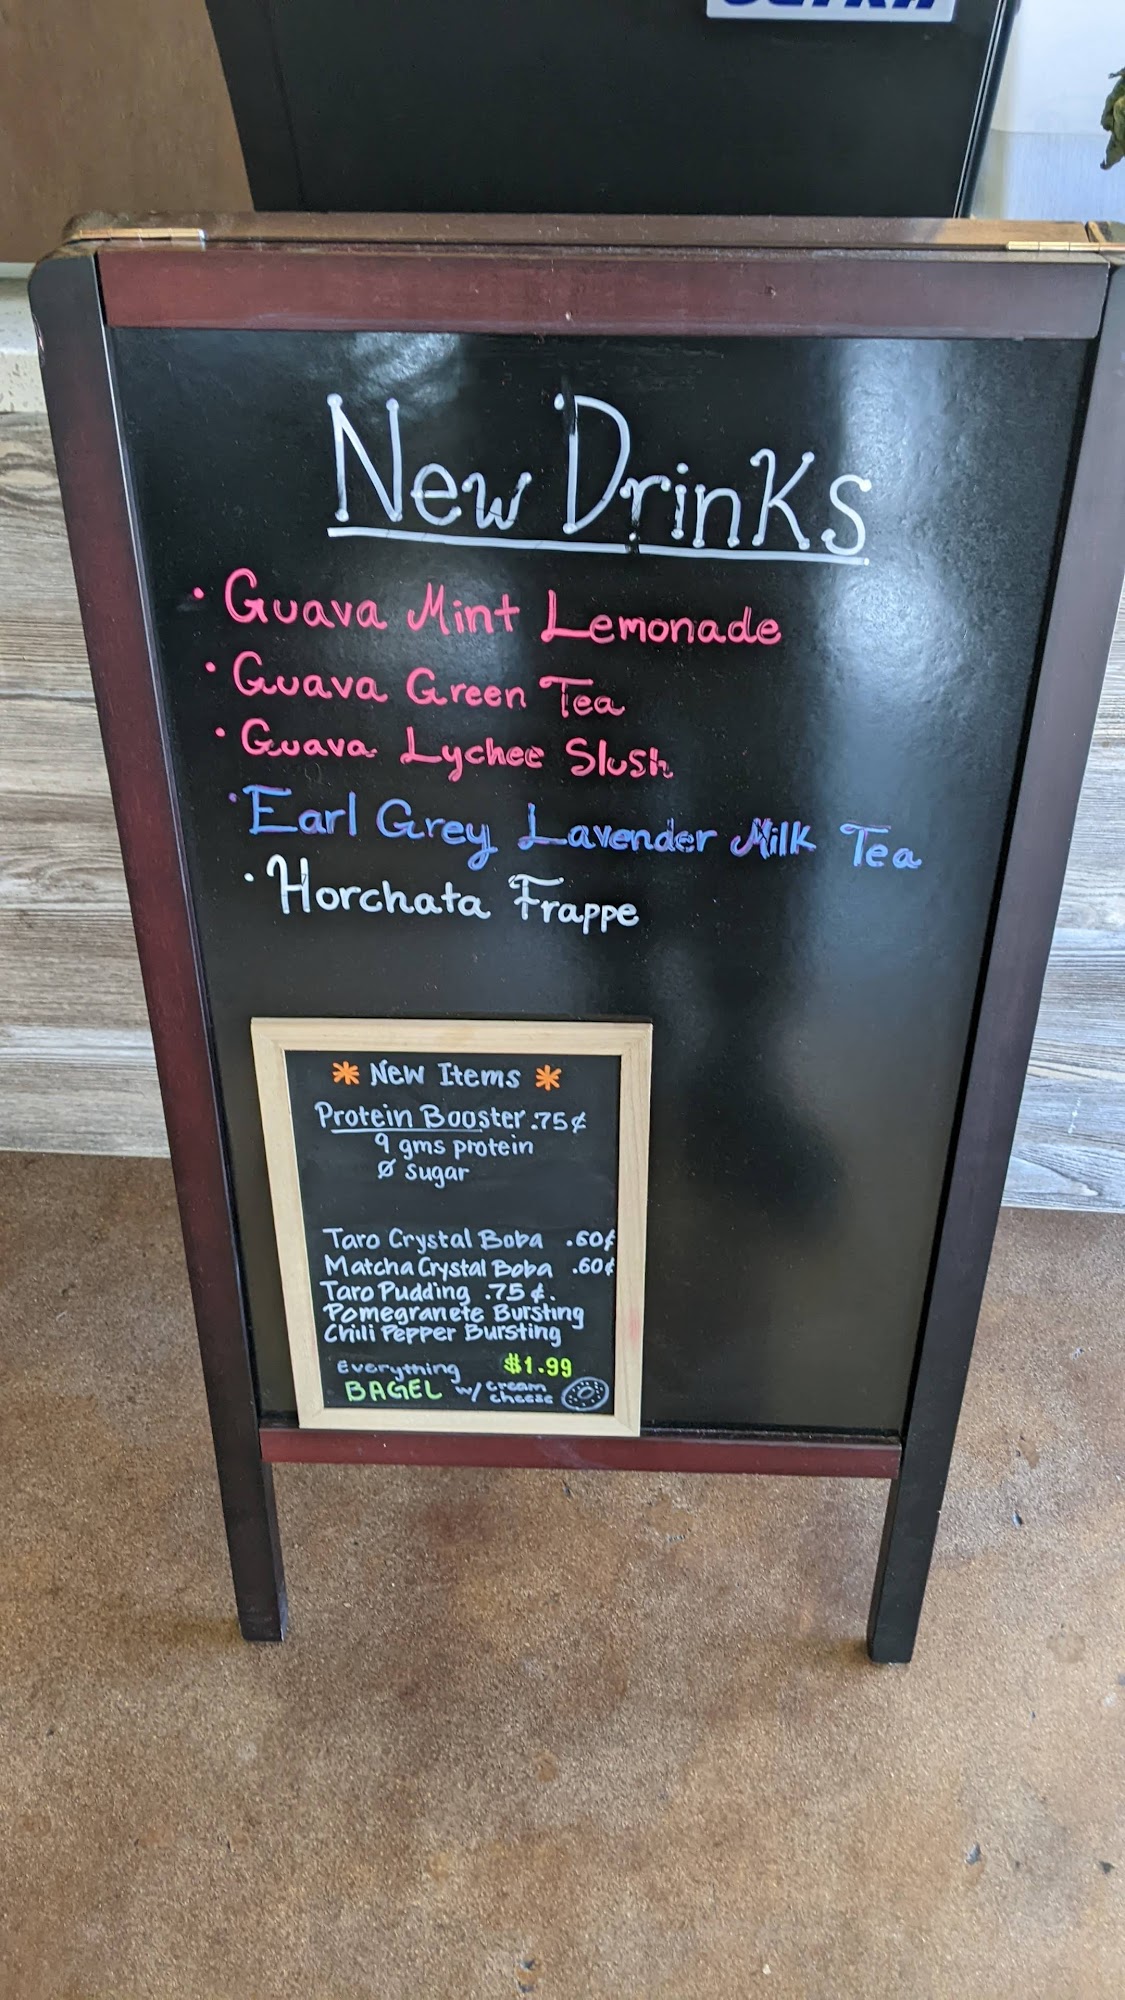 New Drinks
· Guava Mint Lemonade
· Guava Green Tea
· Guava Lychee Slush
· Earl Grey Lavender Milk Tea
· Horchata Frappe
* New Items *
Protein Booster .75¢
9 gms protein
Ø sugar
Taro Crystal Boba .60¢
Matcha Crystal Boba .60¢
Taro Pudding .75¢.
Pomegranete Bursting
Chili Pepper Bursting
Everything $1.99
BAGEL w/ cream cheese